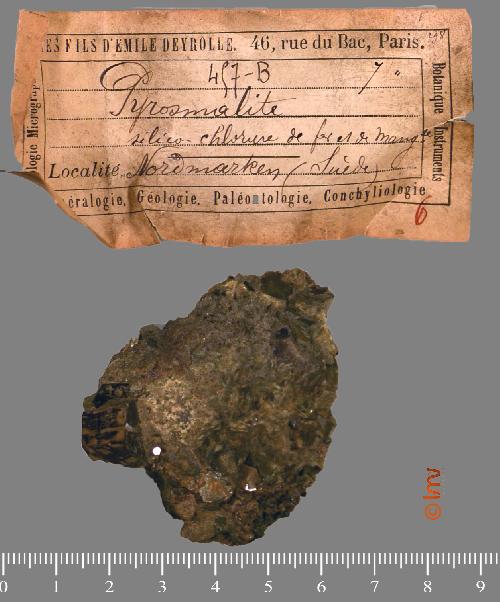 ES FILS D'EMILE DEYROLLE. 46, rue du Bac, Paris.
457-B 7 "
Pyrosmalite
silico-chlorure de fer et de mang
Localité Nordmarken (Suède)
éralogie, Géologie, Paléontologie, Conchyliologie
logie Microgra
Botanique Instruments
6
© lmv
0 1 2 3 4 5 6 7 8 9